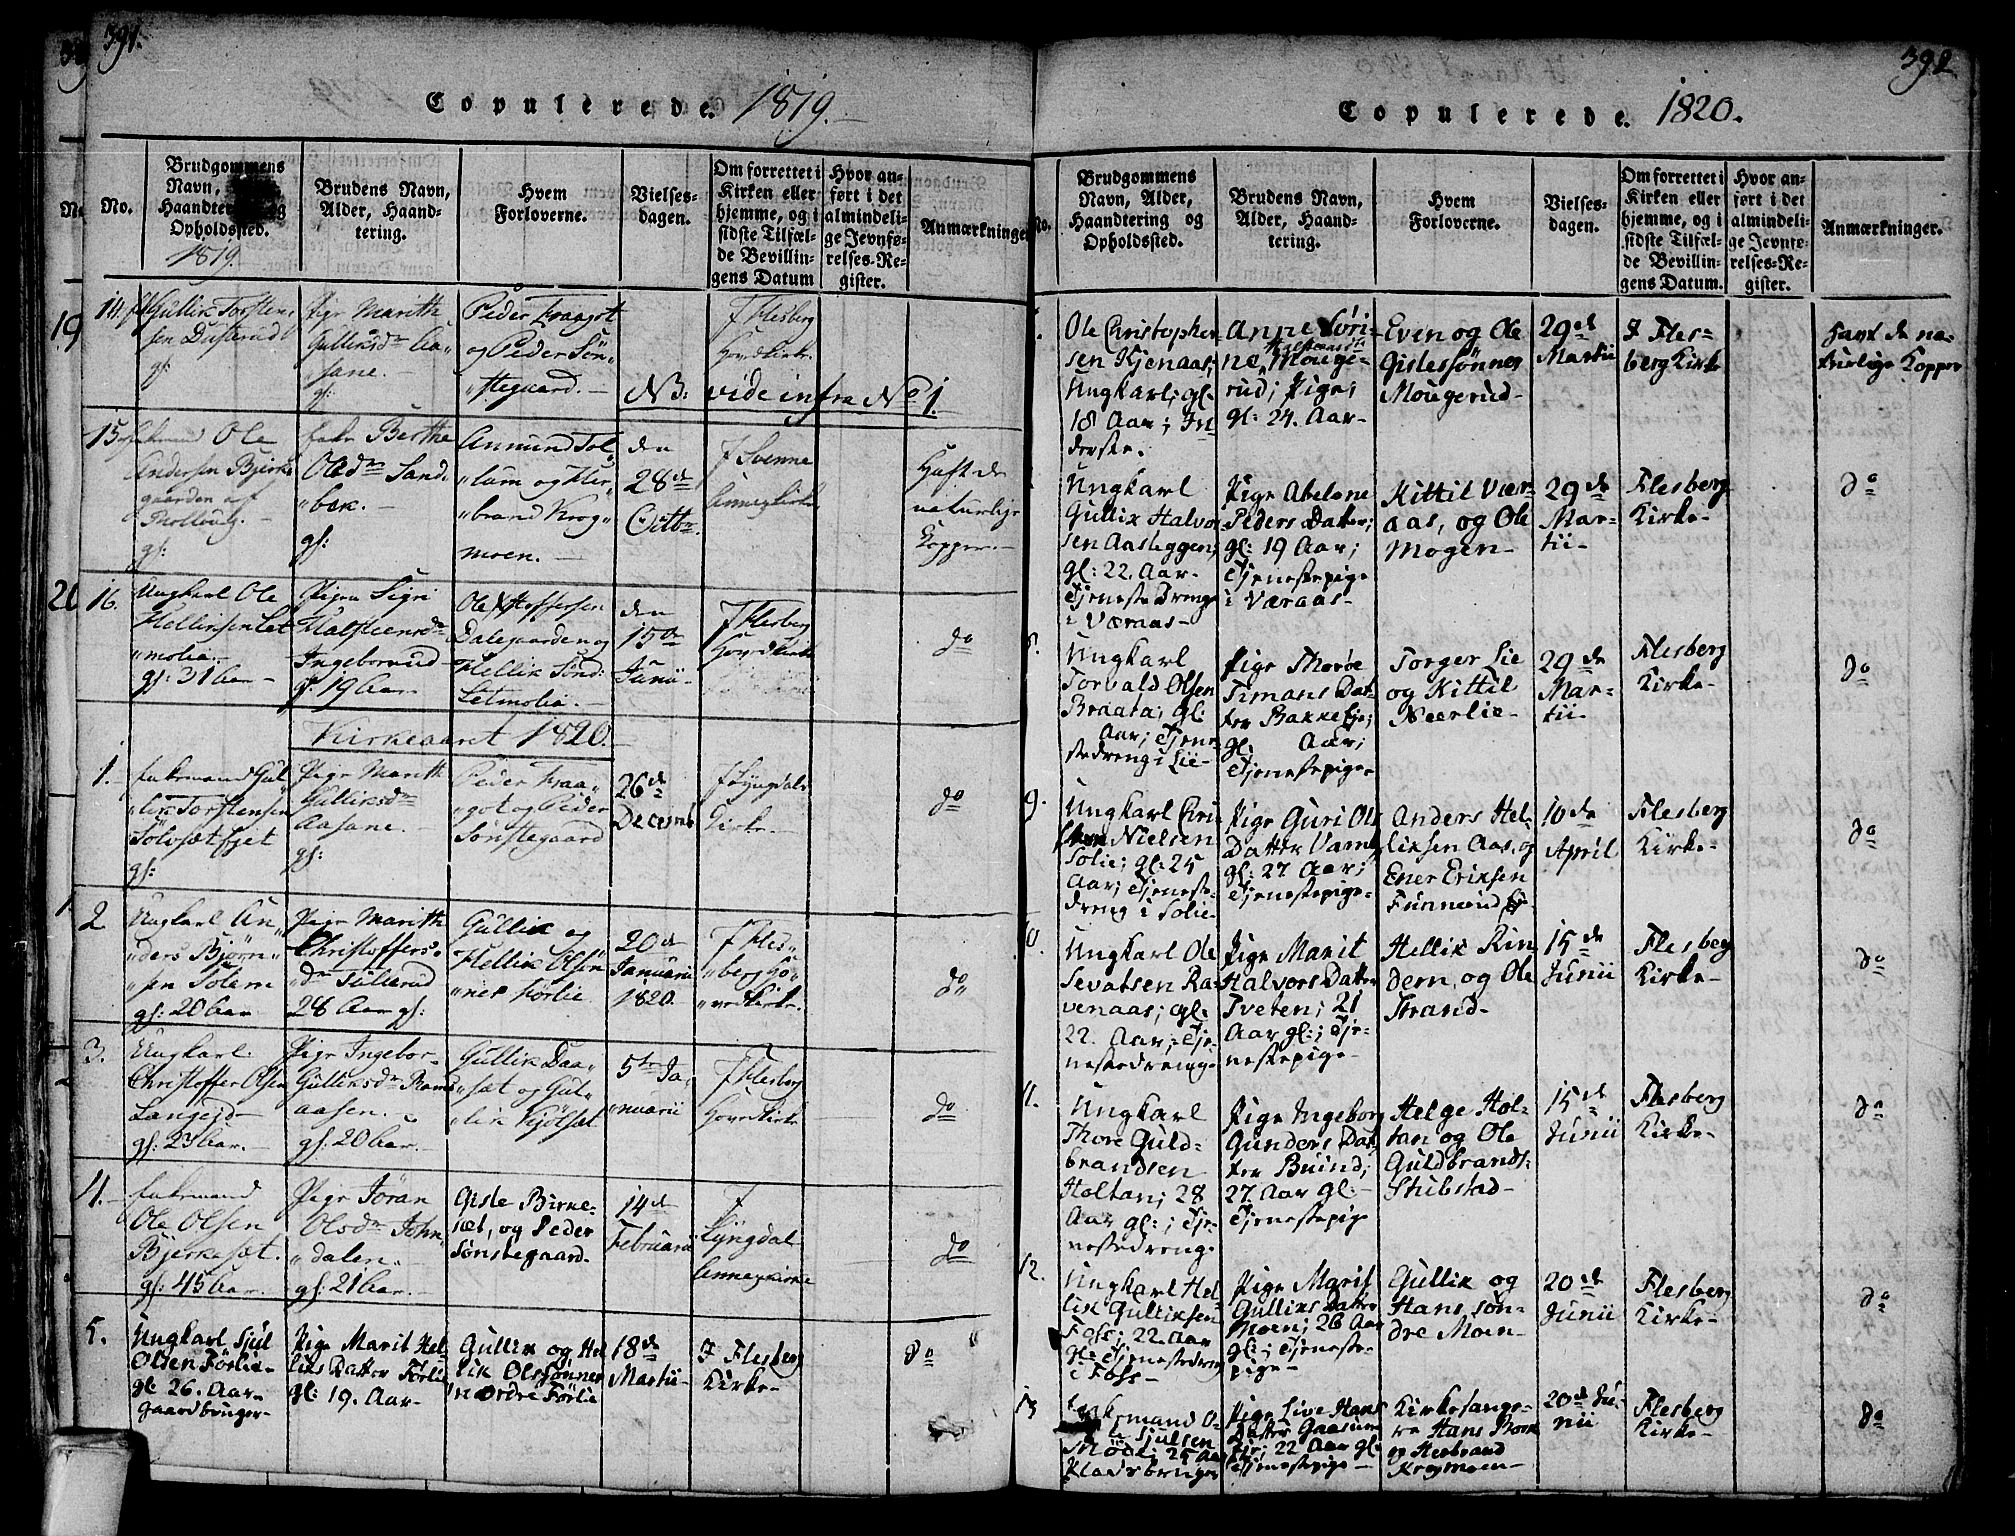 391.
Copulerede. 1819.
No.
Brudgommens
Navn,
Haandtering og
Opholdssted.
1819.
Brudens Navn,
Alder, Haand-
tering.
Hvem
Forloverne.
Vielses-
dagen.
Om forrettet i
Kirken eller
hjemme, og i
sidste Tilfæl-
de Bevillin-
gens Datum
Hvor an-
ført i det
almindeli-
ge Jevnfø-
relses-Re-
gister.
Anmærkninger
14.
Gullik Torsten-
sen
gl:
Pige Marith
Gulliksdr Aa-
sane.
gl:
Peder Kraagot
og Peder Søn-
stegaard.
I Flesberg
Hovdkirke
NB: vide infra No 1.
15
Enkemand Ole
Andersen Bjerke-
gaarden af
Rolloug.
gl:
Enke Berthe
Olsdr Sand-
bæk.
gl:
Anmund Tol-
lum og Her-
brand Krog-
moen.
den
28de
Octbr.
I Svenne
Annexkirke
Haft de
naturlige
Kopper.
16.
Ungkarl Ole
Helliksen Let-
molia.
gl: 31 Aar
Pigen Sigri
Halsteensdr
Ingebornrud
gl. 19 Aar.
Ole Kstoffersen
Dalegaarden og
Hellik Sønd:
Letmolia.
den
15de
Junii
I Flesberg
Hovdkirke
do
Kirkeaaret 1820.
1.
Enkemand Gul-
lik Torstensen
Sølvsætejet
gl:
Pige Marith
Gulliksdr
Aasane.
gl:
Peder Kraa-
got og Peder
Sønstegaard
26de
Decemb
I Lyngdals
Kirke.
do
2
Ungkarl An-
ders Bjørn-
sen Tolem
gl: 20 Aar
Pige Marith
Christoffers-
dr Tullerud
28 Aar gl:
Gullik og
Hellik Olsøn-
ner Førlie
20de
Januarii
1820.
I Fles-
berg Ho-
vedkirke.
do
3.
Ungkarl
Christoffer Olsen
Langejd
gl: 23 Aar.
Pige Ingebor
Gulliksdr Rams-
aasen.
gl: 20 Aar.
Gullik Daa-
sæt og Gul-
lik Kjølsæt
5te Ja-
nuarii
I Flesberg
Hovedkirke
do
4.
Enkemand
Ole Olsen
Bjerkesæt.
gl: 45 Aar.
Pige Jøran
Olsdr John-
dalen.
gl: 21 Aar.
Gisle Birke-
sæt, og Peder
Sønstegaard.
14de
Februarii
I
Lyngdal
Annexkirke
do
5.
Ungkarl Sjul
Olsen Førlie
gl: 26. Aar
Gaardbruger
Pige Marit Hel-
liks Datter Førlie
gl: 19. Aar
Gullik og Hel
lik Olssønner
nordre Førlie
18de
Martii
I Flesberg
Kirke
do
392
Copulerede. 1820.
No.
Brudgommens
Navn, Alder,
Haandtering og
Opholdssted.
Brudens Navn,
Alder, Haand-
tering.
Hvem
Forloverne.
Vielses-
dagen.
Om forrettet i
Kirken eller
hjemme, og i
sidste Tilfæl-
de Bevillin-
gens Datum.
Hvor an-
ført i det
almindeli-
ge Jevnfø-
relses-Re-
gister.
Anmærkninger.
Ole Christopher-
sen Kjenaas;
Ungkarl; gl:
18 Aar; In-
derste.
Anne Søri-
ne Halstensdr Mouge-
rud; Pige;
gl: 24. Aar
Even og Ole
Gislessønner
Mougerud
29de
Martii
I Fles-
berg Kirke
Havt de na-
turlige Kopper
Ungkarl
Gullik Halvor-
sen Aasleggen;
gl: 22. Aar
Tjenestedreng
i Væraas
Pige Abelone
Peders Datter;
gl: 19 Aar;
Tjenestepige
i Væraas
Kittil Vær-
aas, og Ole
Mogen
29de
Mar-
tii
Flesberg
Kirke
do
8.
Ungkarl
Torvald Olsen
Braata; gl:
Aar; Tjene-
stedreng i Lie
Pige Thoróe
Timans Dat-
ter Bakke Eje;
gl: Aar;
Tjenestepige
Torger Lie
og Kittil
Neerlie
29de
Mar-
tii
Flesberg
Kirke
do
9.
Ungkarl Chri-
sten Nielsen
Solie; gl: 25
Aar; Tjeneste-
dreng i Solie
Pige Guri Ols
Datter Vamb
gl: 27 Aar;
Tjenestepige
Anders Hel-
liksen Aas, og
Ener Eriksen
Funnerud
10de
April
Flesberg
Kirke
do
10.
Ungkarl Ole
Sevatsen Ra-
venaas; gl:
22. Aar; Tje-
nestedreng
Pige Marit
Halvors Datter
Tveten; 21
Aar gl:; Tje-
nestepige
Hellik Rin
dem, og Ole
Strand
15de
Junii
Flesberg
Kirke
do
11.
Ungkarl
Thore Guld-
brandsen
Holtan; 28
Aar gl:; Tje-
nestedreng
Pige Ingeborg
Gunders Dat-
ter Buind;
27. Aar gl:
Tjenestepig
Helge Hol-
tan og Ole
Guldbrands:
Stubstad
15de
Junii
Flesberg
Kirke
do
12.
Ungkarl Hel-
lik Gulliksen
Foss; 22. Aar
gl: Tjenestedreng
i Foss
Pige Marit
Gulliks Datter
Moen; 26 Aar
gl:; Tjeneste-
pige
Gullik og
Hans søn-
dre Moen
20de
Junii
Flesberg
Kirke
do
13
Enkemand O-
le Sjulsen
25 Aar
Pige Live Hans
Datter
22 Aar gl:
Tjenestepige
Kirkesange-
re Hans
og Herbrand
Krogmoen
20de Ju-
nii
Flesberg
Kirke
do